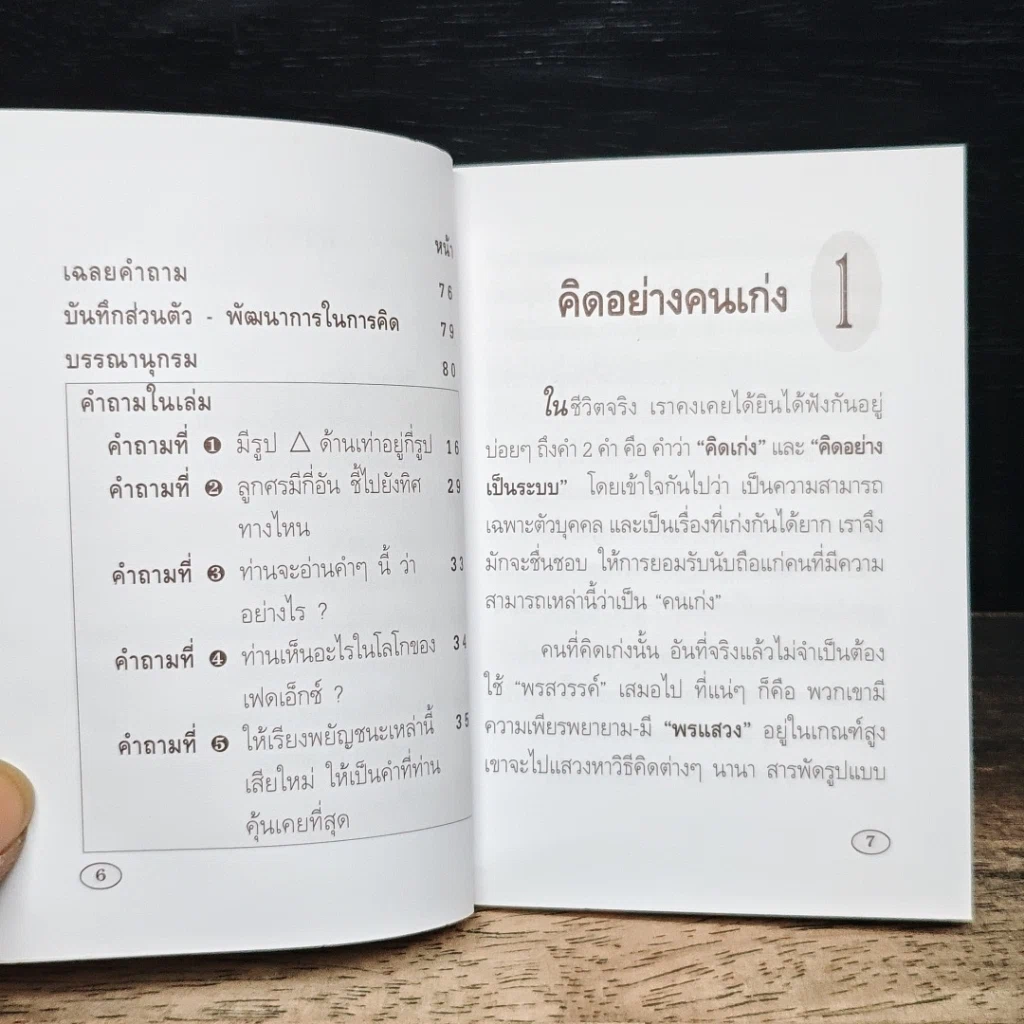 หน้า
เฉลยคำถาม 76
บันทึกส่วนตัว - พัฒนาการในการคิด 79
บรรณานุกรม 80
คำถามในเล่ม
คำถามที่ ❶ มีรูป △ ด้านเท่าอยู่กี่รูป 16
คำถามที่ ❷ ลูกศรมีกี่อัน ชี้ไปยังทิศ 29
ทางไหน
คำถามที่ ❸ ท่านจะอ่านคำๆ นี้ ว่า 33
อย่างไร ?
คำถามที่ ❹ ท่านเห็นอะไรในโลโกของ 34
เฟดเอ็กซ์ ?
คำถามที่ ❺ ให้เรียงพยัญชนะเหล่านี้ 35
เสียใหม่ ให้เป็นคำที่ท่าน
คุ้นเคยที่สุด
6
คิดอย่างคนเก่ง 1
ในชีวิตจริง เราคงเคยได้ยินได้ฟังกันอยู่
บ่อยๆ ถึงคำ 2 คำ คือ คำว่า “คิดเก่ง” และ “คิดอย่าง
เป็นระบบ” โดยเข้าใจกันไปว่า เป็นความสามารถ
เฉพาะตัวบุคคล และเป็นเรื่องที่เก่งกันได้ยาก เราจึง
มักจะชื่นชอบ ให้การยอมรับนับถือแก่คนที่มีความ
สามารถเหล่านี้ว่าเป็น “คนเก่ง”
คนที่คิดเก่งนั้น อันที่จริงแล้วไม่จำเป็นต้อง
ใช้ “พรสวรรค์” เสมอไป ที่แน่ๆ ก็คือ พวกเขามี
ความเพียรพยายาม-มี “พรแสวง” อยู่ในเกณฑ์สูง
เขาจะไปแสวงหาวิธีคิดต่างๆ นานา สารพัดรูปแบบ
7